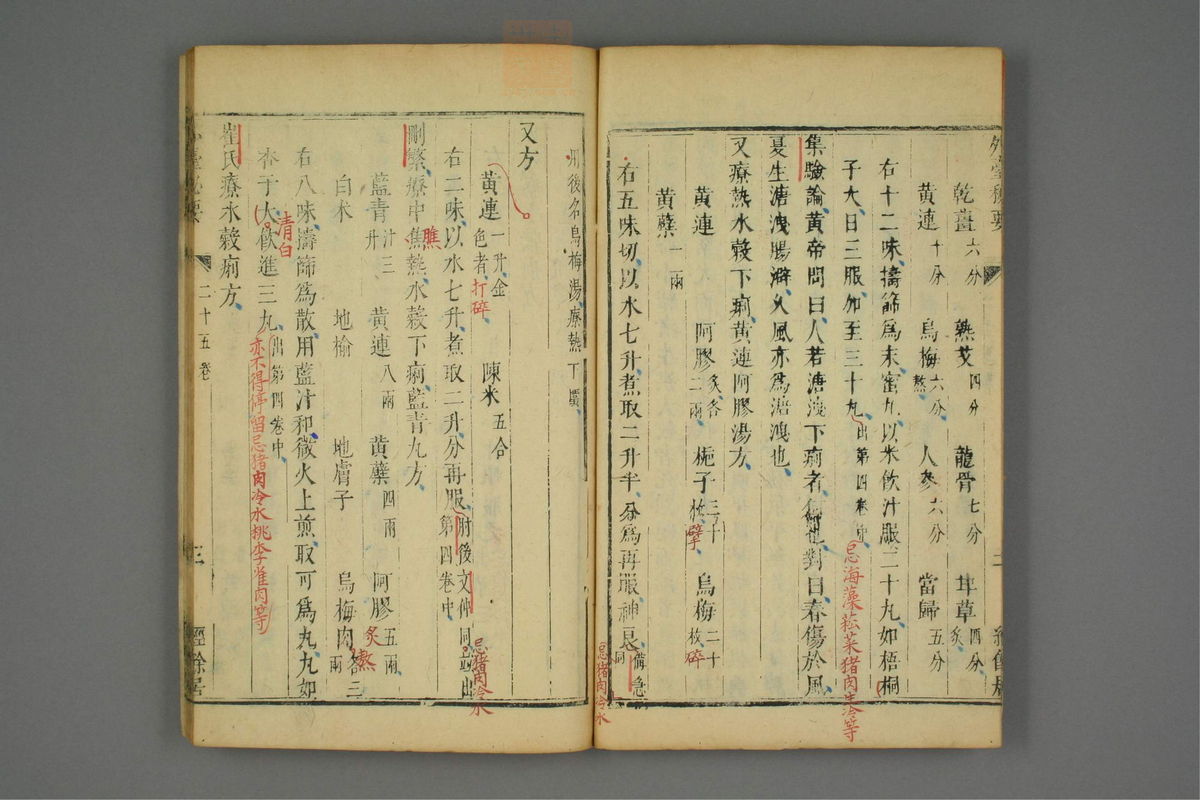 乾薑六分 熟艾四分 龍骨七分 草四分炙
黃連十分 烏梅六分熬 人參六分 當歸五分
右十二味擣篩爲末蜜丸以米飲汁服二十丸如梧桐
子大日三服加至三十丸出第四卷中
忌海藻菘菜猪肉生冷等
集驗論黃帝問曰人若溏洩下痢者何也對曰春傷於風
夏生溏洩腸澼久風亦爲溏洩也
又療熱水穀下痢黃連阿膠湯方
黃連 阿膠炙各二兩 梔子三十枚擘 烏梅二十枚碎
黃蘗一兩
右五味切以水七升煮取二升半分爲再服神良備急同
忌猪肉冷水
肘後名烏梅湯療熱下
又方
黃連一升金色者打碎 陳米五合
右二味以水七升煮取二升分再服肘後文仲同並出第四卷中
忌猪肉冷水
刪繁療中焦熱水穀下痢藍青丸方
膲
藍青汁三升 黃連八兩 黃蘗四兩 阿膠五兩炙
白朮 地榆 地膚子 烏梅肉各三兩熬
右八味擣篩爲散用藍汁和微火上煎取可爲丸丸如
杏子大飲進三丸出第四卷中
清白
亦不得停留忌猪肉冷水桃李雀肉等
崔氏療水穀痢方
二十五卷
三
經餘居